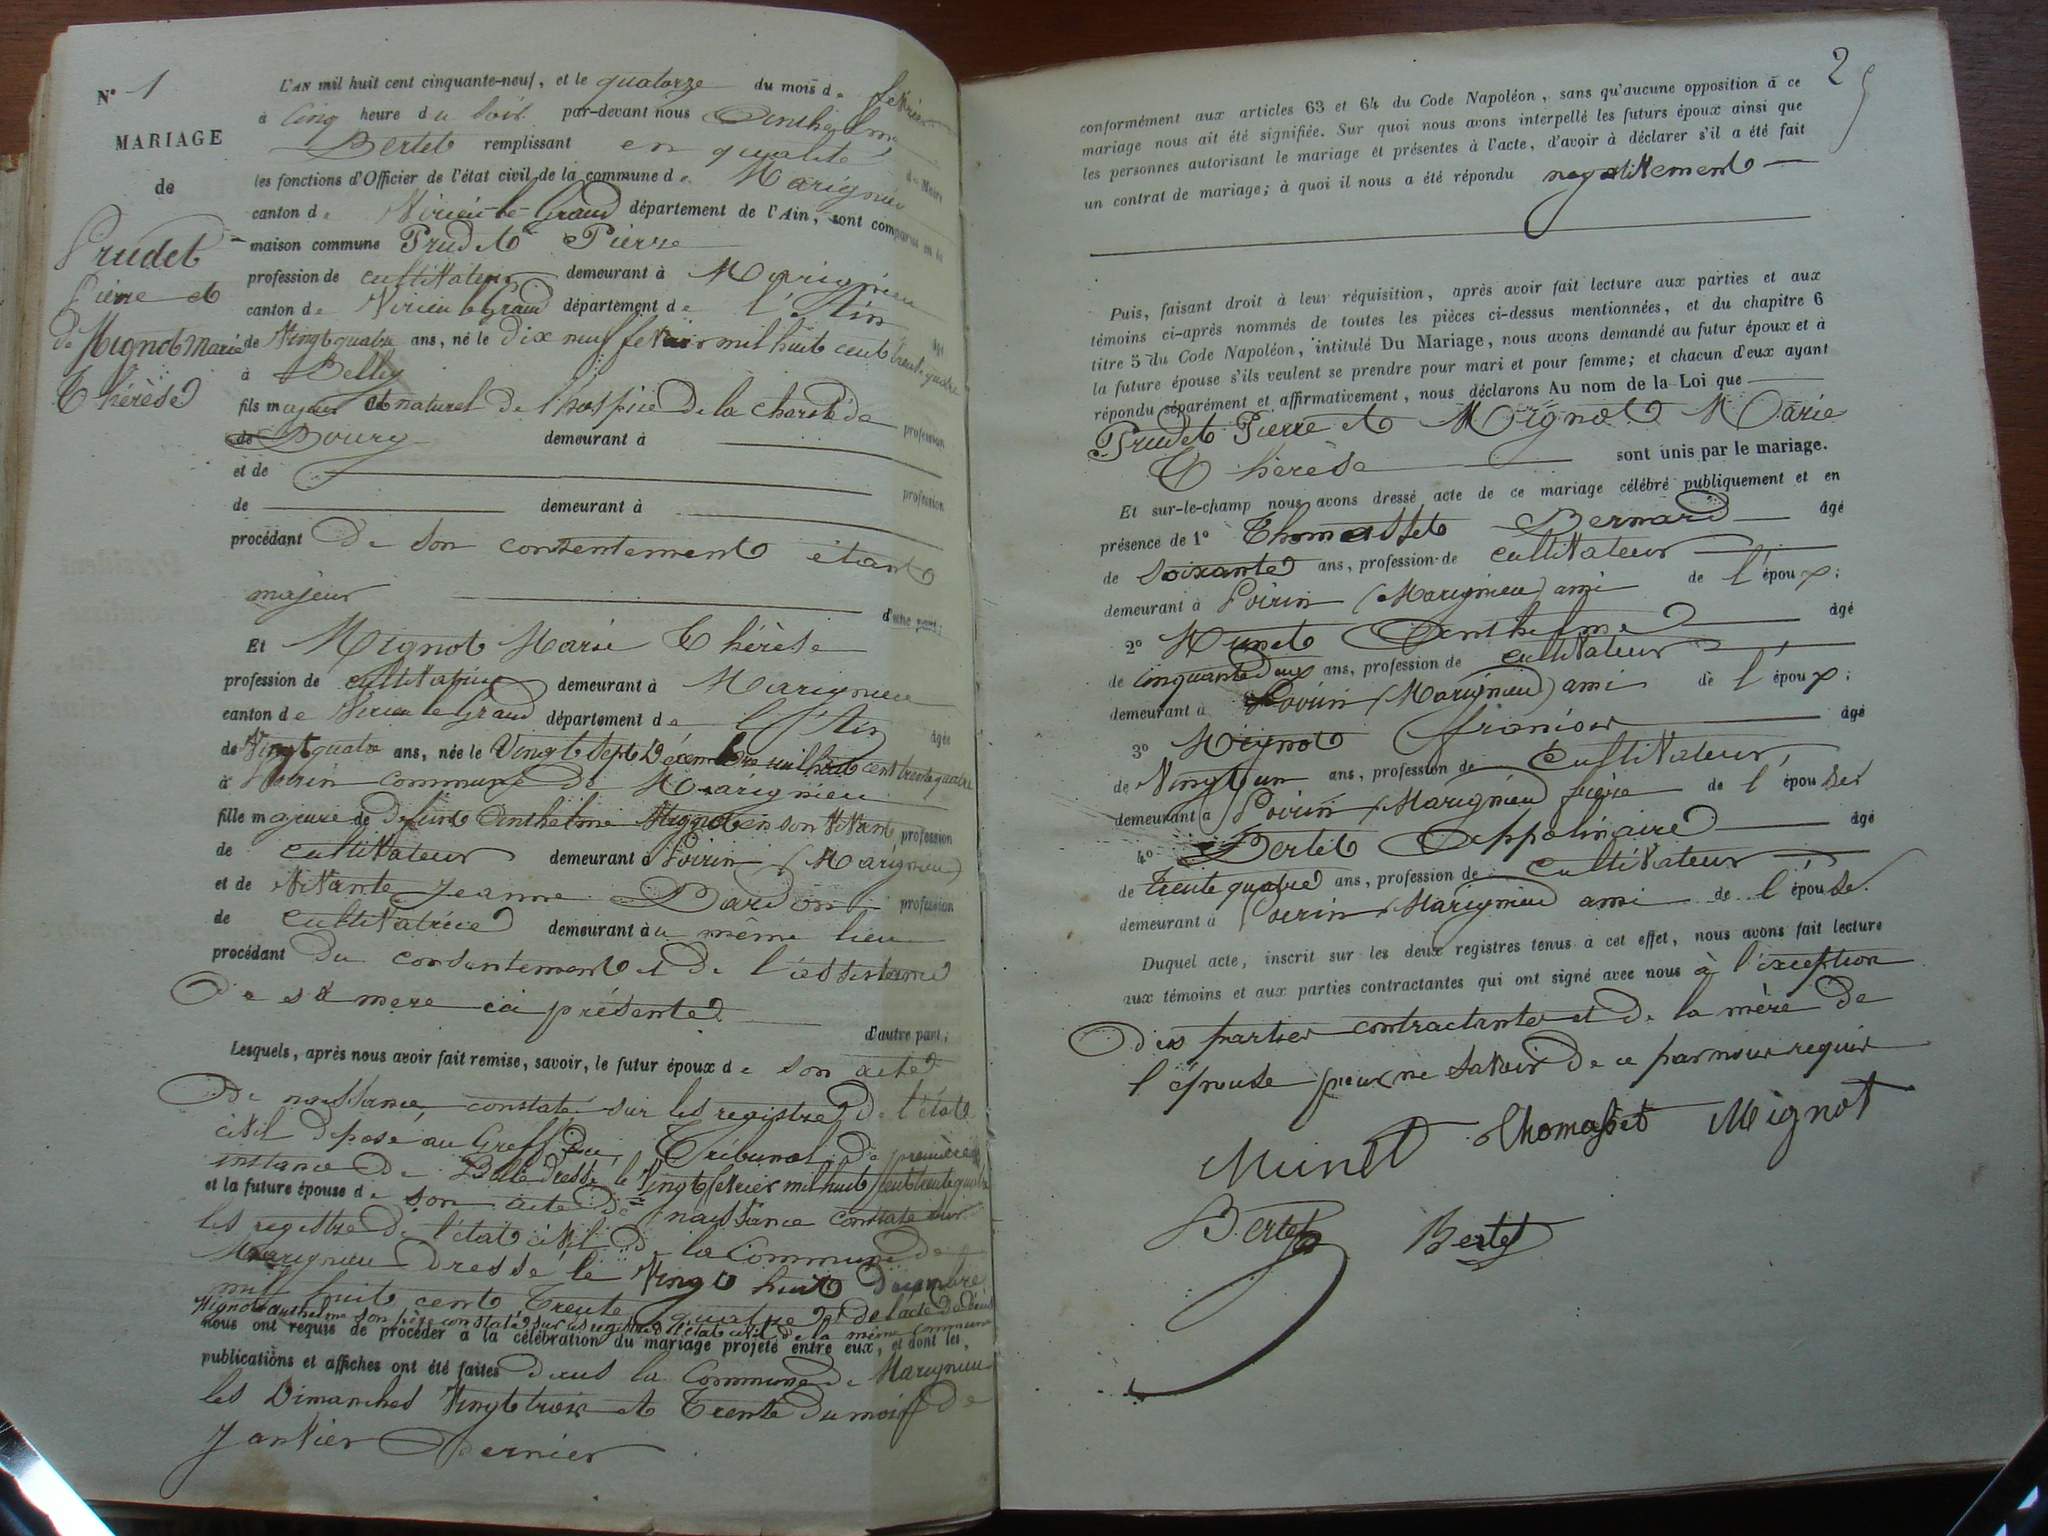 N° 1
MARIAGE
de
Prudet
Pierre et
de Mignot Marie
Thérèse
L'AN mil huit cent cinquante-neuf, et le quatorze du mois de février
à cinq heure du soir par-devant nous Anthelme
Bertet remplissant en qualité de Maire
les fonctions d'Officier de l'état civil de la commune de Marignieu
canton de Virieu-le-Grand département de l'Ain, sont comparus en la
maison commune Prudet Pierre
profession de cultivateur demeurant à Marignieu
canton de Virieu le Grand département de l'Ain âgé
de Vingt quatre ans, né le dix neuf fevrier mil huit cent trente quatre
à Belley
fils majeur et naturel de l'hospice de la charité de
de Bourg demeurant à profession
et de profession
de demeurant à
procédant De son consentement étant
majeur d'une part;
Et Mignot Marie Thérèse
profession de cultivatrice demeurant à Marignieu
canton de Virieu le Grand département de l'Ain âgée
de Vingt quatre ans, née le Vingt sept Décembre mil huit cent trente quatre
à Poirin commune de Marignieu
fille majeure de Defunt Anthelme Mignot en son Vivant profession
de cultivateur demeurant à Poirin (Marignieu)
et de Vivante Jeanne Bardon profession
de cultivatrice demeurant au même lieu
procédant Du consentement et De l'assistance
De sa mere ici présente
d'autre part;
Lesquels, après nous avoir fait remise, savoir, le futur époux de son acte
De naissance constaté sur les registres De l'état
civil déposé au Greffe du Tribunal De première
instance De Belley Dressé le Vingt fevrier mil huit cent trente quatre
et la future épouse de son acte De naissance constaté sur
les registre De l'état civil De la Commune De
Marignieu Dressé le Vingt huit Décembre
mil huit cent Trente quatre et De l'acte De décès
Mignot Anthelme son père constaté sur les registres De l'état civil De la même commune
nous ont requis de procéder à la célébration du mariage projeté entre eux, et dont les
publications et affiches ont été faites Dans la Commune De Marignieu
les Dimanches Vingt trois et Trente Du mois De
Janvier Dernier
2
conformément aux articles 63 et 64 du Code Napoléon, sans qu'aucune opposition à ce
mariage nous ait été signifiée. Sur quoi nous avons interpellé les futurs époux ainsi que
les personnes autorisant le mariage et présentes à l'acte, d'avoir à déclarer s'il a été fait
un contrat de mariage; à quoi il nous a été répondu negativement
Puis, faisant droit à leur réquisition, après avoir fait lecture aux parties et aux
témoins ci-après nommés de toutes les pièces ci-dessus mentionnées, et du chapitre 6
titre 5 du Code Napoléon, intitulé Du Mariage, nous avons demandé au futur époux et à
la future épouse s'ils veulent se prendre pour mari et pour femme; et chacun d'eux ayant
répondu séparément et affirmativement, nous déclarons Au nom de la Loi que
Prudet Pierre et Mignot Marie
Thérèse sont unis par le mariage.
Et sur-le-champ nous avons dressé acte de ce mariage célébré publiquement et en
présence de 1° Thomasset Bernard âgé
de soixante ans, profession de cultivateur
demeurant à Poirin (Marignieu) ami de l'époux;
2° Munet Anthelme âgé
de cinquante deux ans, profession de cultivateur
demeurant à Poirin (Marignieu) ami de l'époux;
3° Mignot françois âgé
de Vingt un ans, profession de Cultivateur
demeurant à Poirin (Marignieu) frère de l'épouse
4° Bertet Appolinaire âgé
de trente quatre ans, profession de cultivateur
demeurant à Poirin (Marignieu) ami de l'épouse.
Duquel acte, inscrit sur les deux registres tenus à cet effet, nous avons fait lecture
aux témoins et aux parties contractantes qui ont signé avec nous à l'exception
Des parties contractantes et De la mère De
l'épouse pour ne savoir De ce par nous requis
Munet Thomasset Mignot
Bertet Bertet